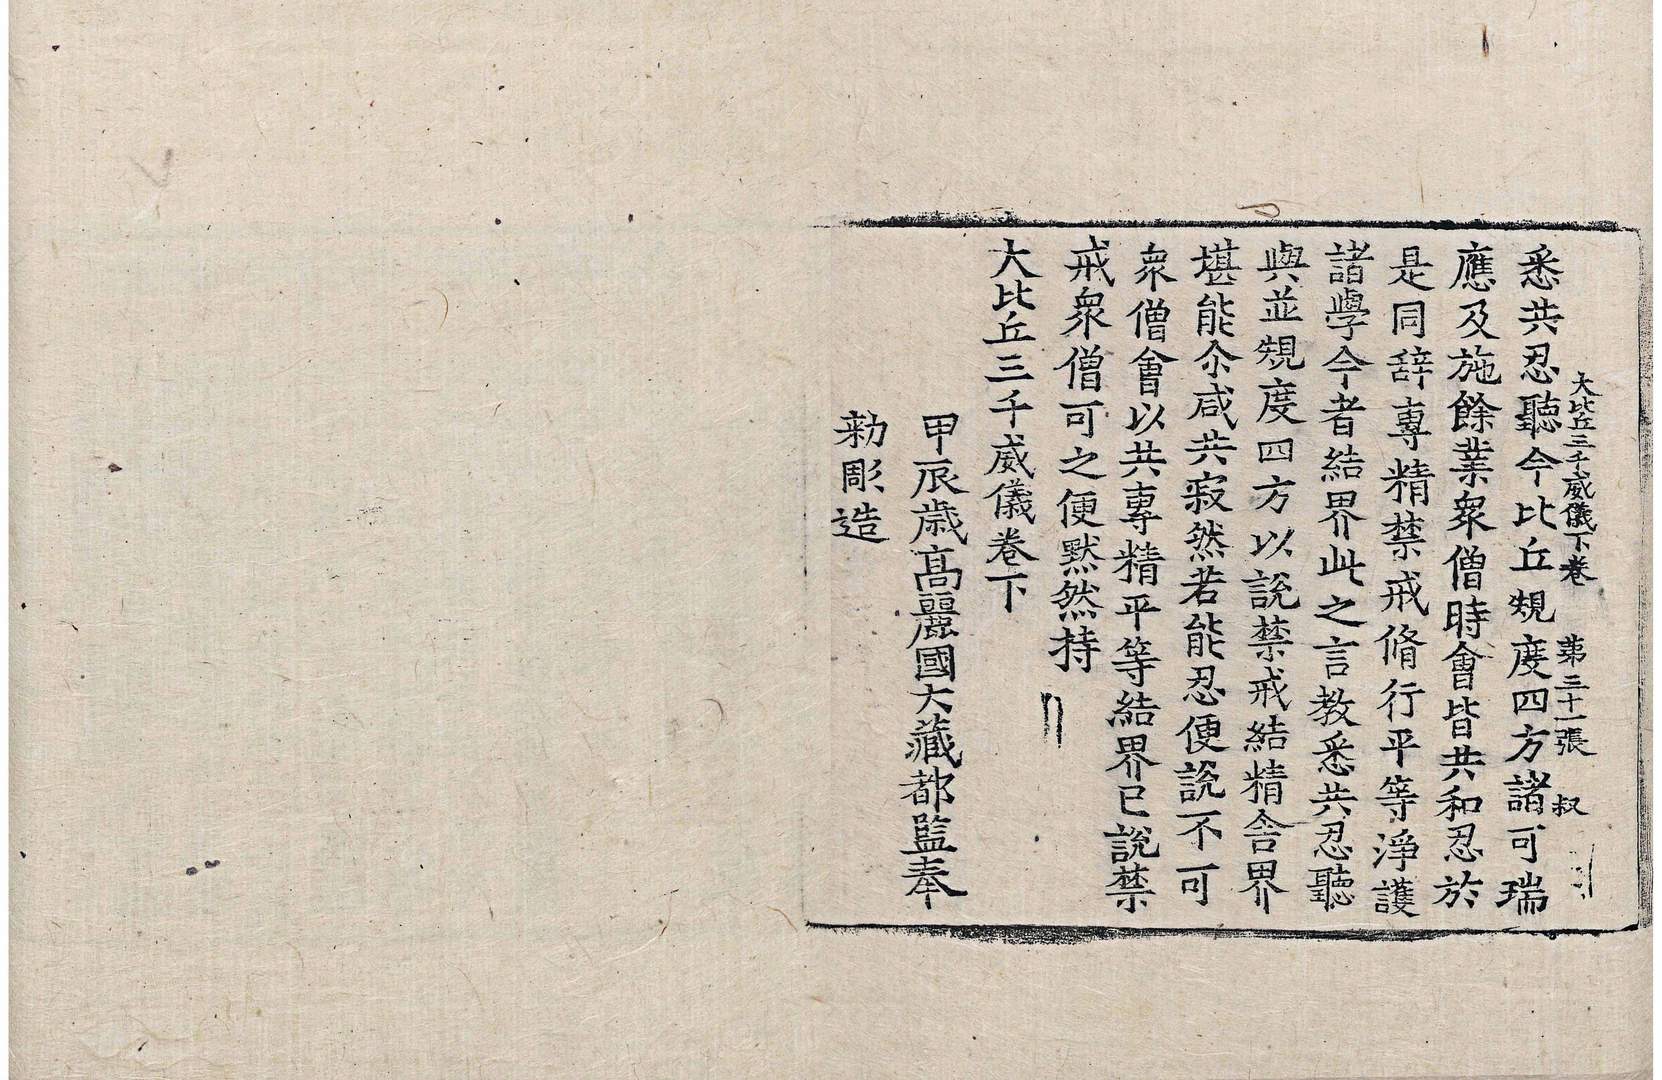 大比丘三千威儀下卷　第三十一張　叔
悉共忍聽今比丘規度四方諸可瑞
應及施餘業衆僧時會皆共和忍於
是同辞專精禁戒脩行平等淨護
諸學今者結界此之言教悉共忍聽
與並規度四方以說禁戒結精舍界
堪能尒咸共寂然若能忍便說不可
衆僧會以共專精平等結界已說禁
戒衆僧可之便默然持
大比丘三千威儀卷下
甲辰歳高麗國大藏都監奉
勑彫造